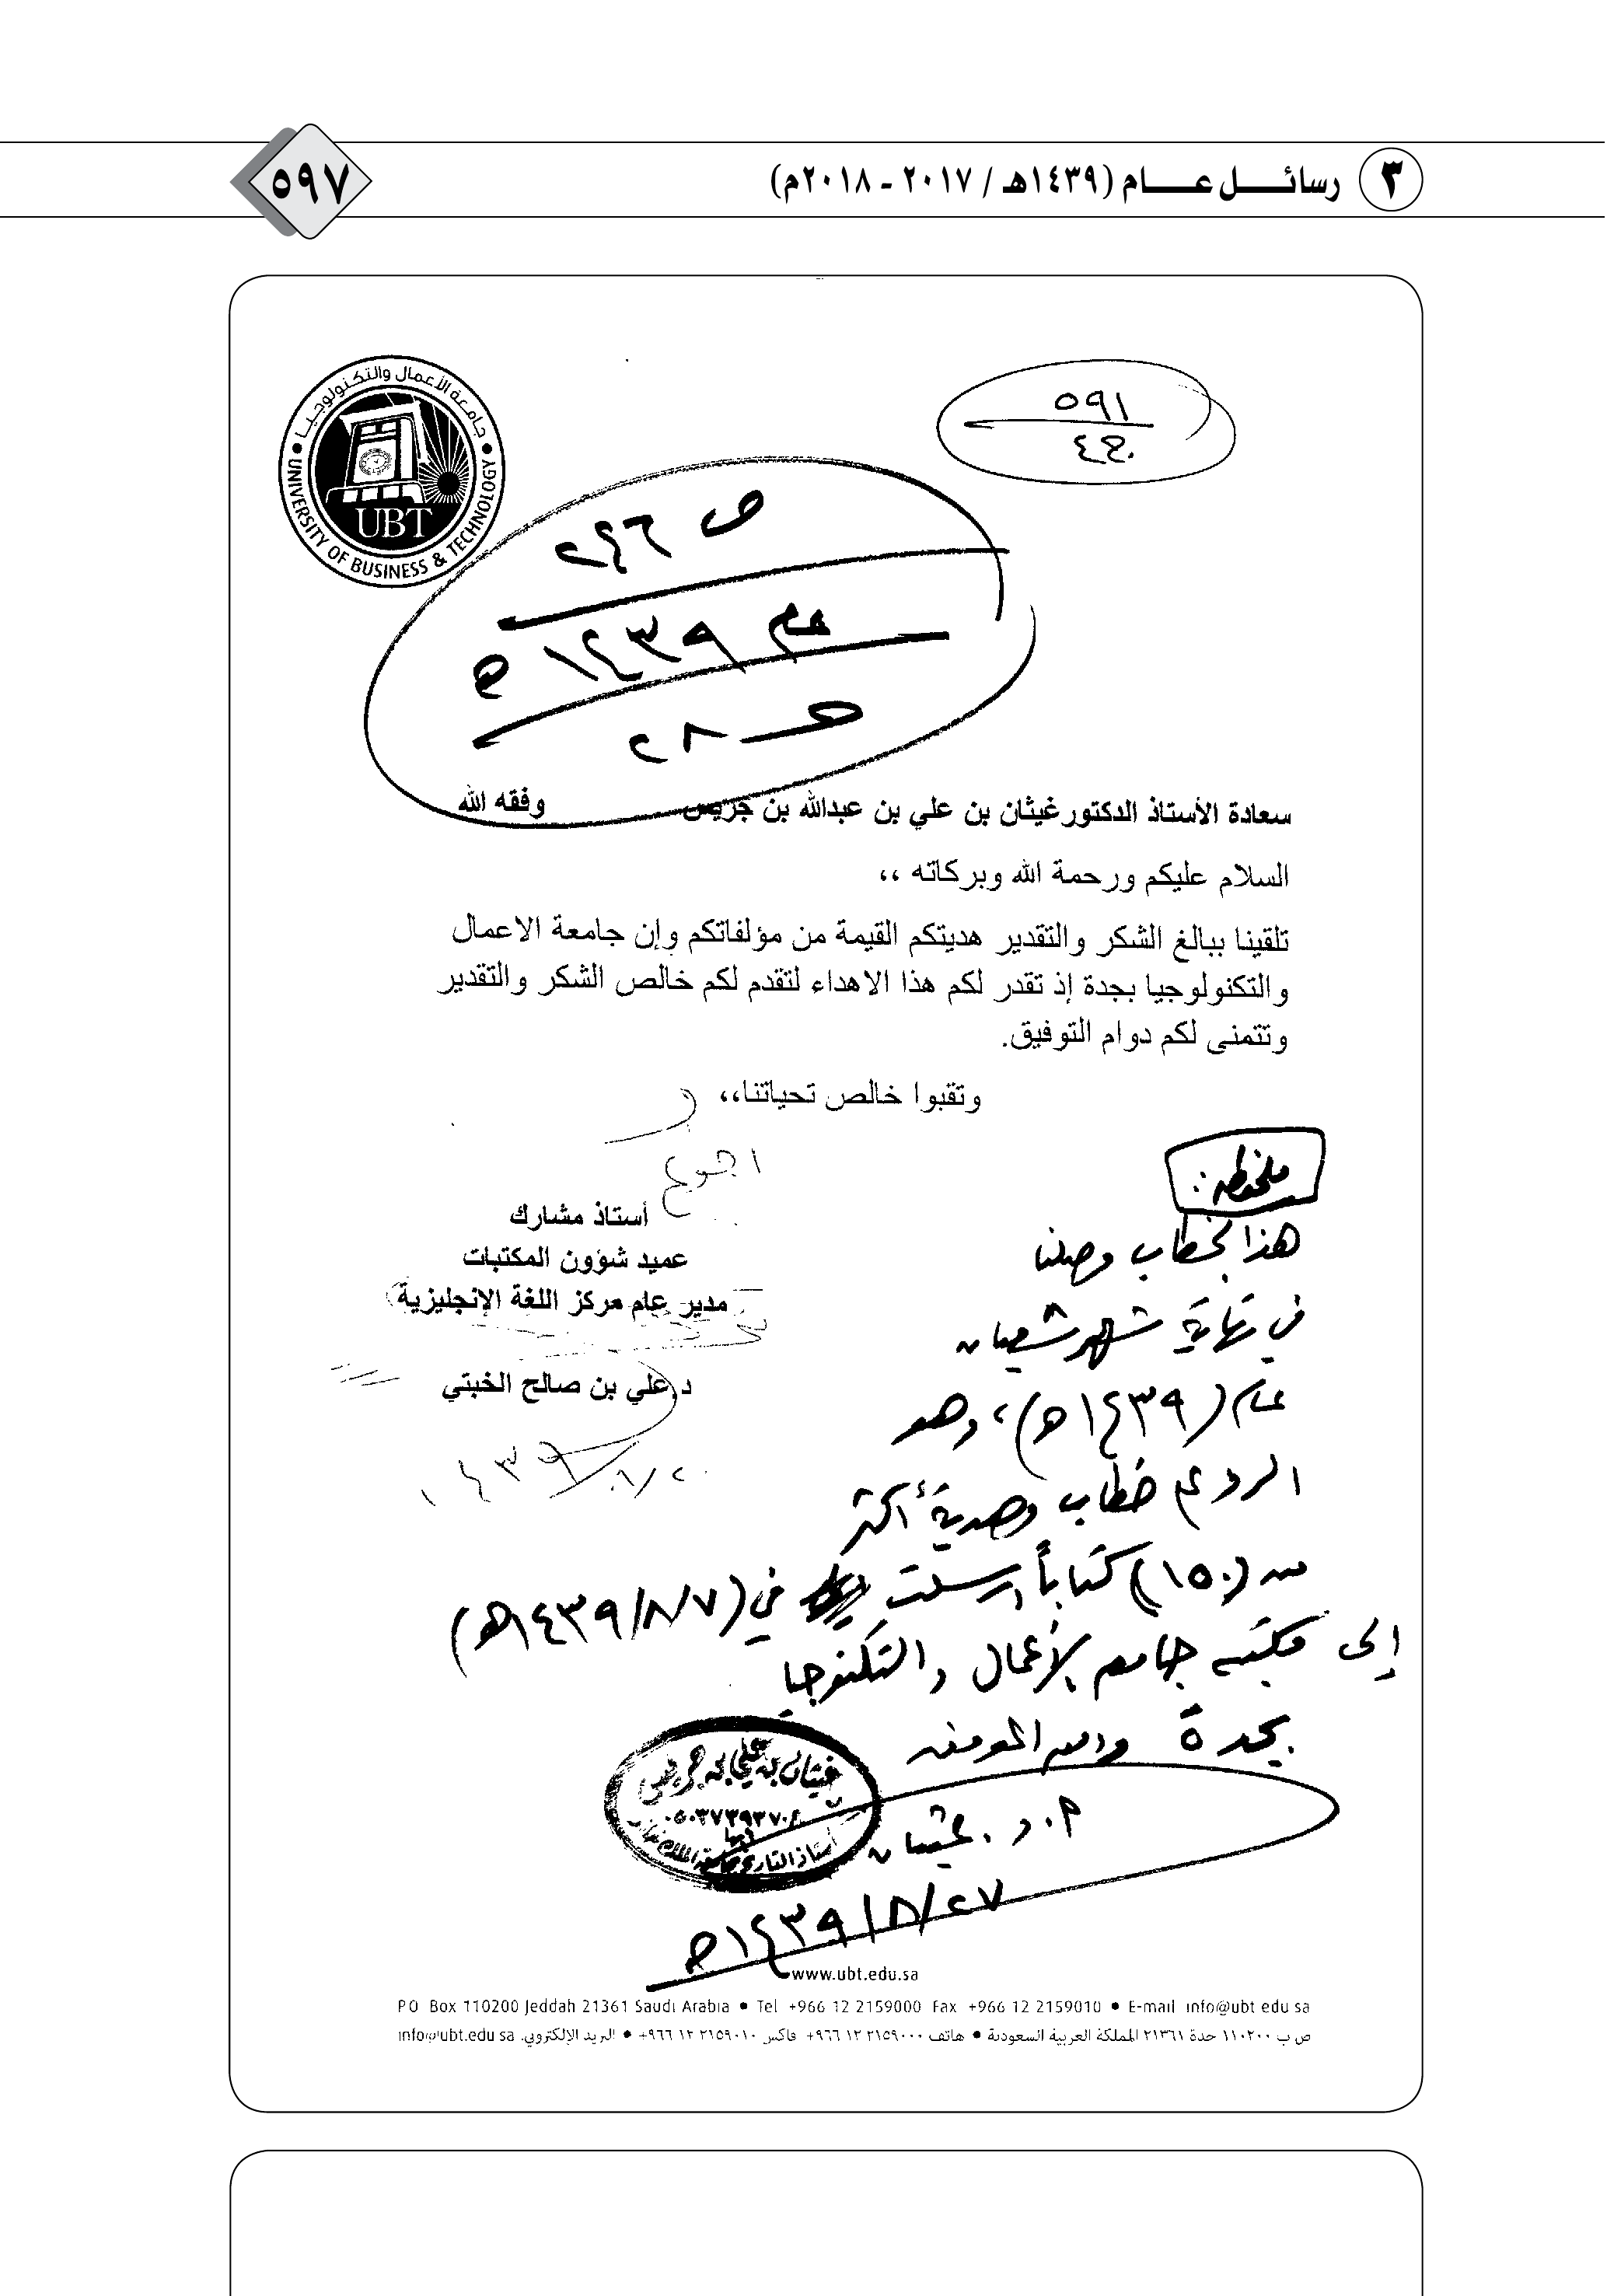 ٣ رسائل عام (١٤٣٩هـ / ٢٠١٧ - ٢٠١٨م)
٥٩٧
جامعة الأعمال والتكنولوجيا
UNIVERSITY OF BUSINESS & TECHNOLOGY
UBT
٥٩١
ص ٢٤٦
عام ١٤٣٩ه
٢٨
سعادة الأستاذ الدكتور غيثان بن علي بن عبدالله بن جريس وفقه الله
السلام عليكم ورحمة الله وبركاته ،،
تلقينا ببالغ الشكر والتقدير هديتكم القيمة من مؤلفاتكم وإن جامعة الاعمال
والتكنولوجيا بجدة إذ تقدر لكم هذا الاهداء لتقدم لكم خالص الشكر والتقدير
وتتمنى لكم دوام التوفيق.
وتقبوا خالص تحياتنا،،
أستاذ مشارك
عميد شؤون المكتبات
مدير عام مركز اللغة الإنجليزية
د.علي بن صالح الخبتي
ملحوظة:
هذا الخطاب وصلنا
في نهاية شهر شعبان
عام (١٤٣٩ه)، وهو
الرد على خطاب وهدية أكثر
من (١٥٠) كتاباً ارسلت في (١٤٣٩/٨/٧هـ)
إلى مكتبة جامعة الأعمال والتكنوجيا
بجدة والله الموفق
أ.د. غيثان
١٤٣٩/٨/٢٧ه
غيثان بن علي بن جريس
www.ubt.edu.sa
P O Box 110200 Jeddah 21361 Saudi Arabia • Tel +966 12 2159000 Fax +966 12 2159010 • E-mail info@ubt edu sa
ص ب ١١٠٢٠٠ جدة ٢١٣٦١ المملكة العربية السعودية • هاتف ٢١٥٩٠٠٠ ١٢ ٩٦٦+ فاكس ٢١٥٩٠١٠ ١٢ ٩٦٦+ • البريد الإلكتروني. info@ubt.edu sa